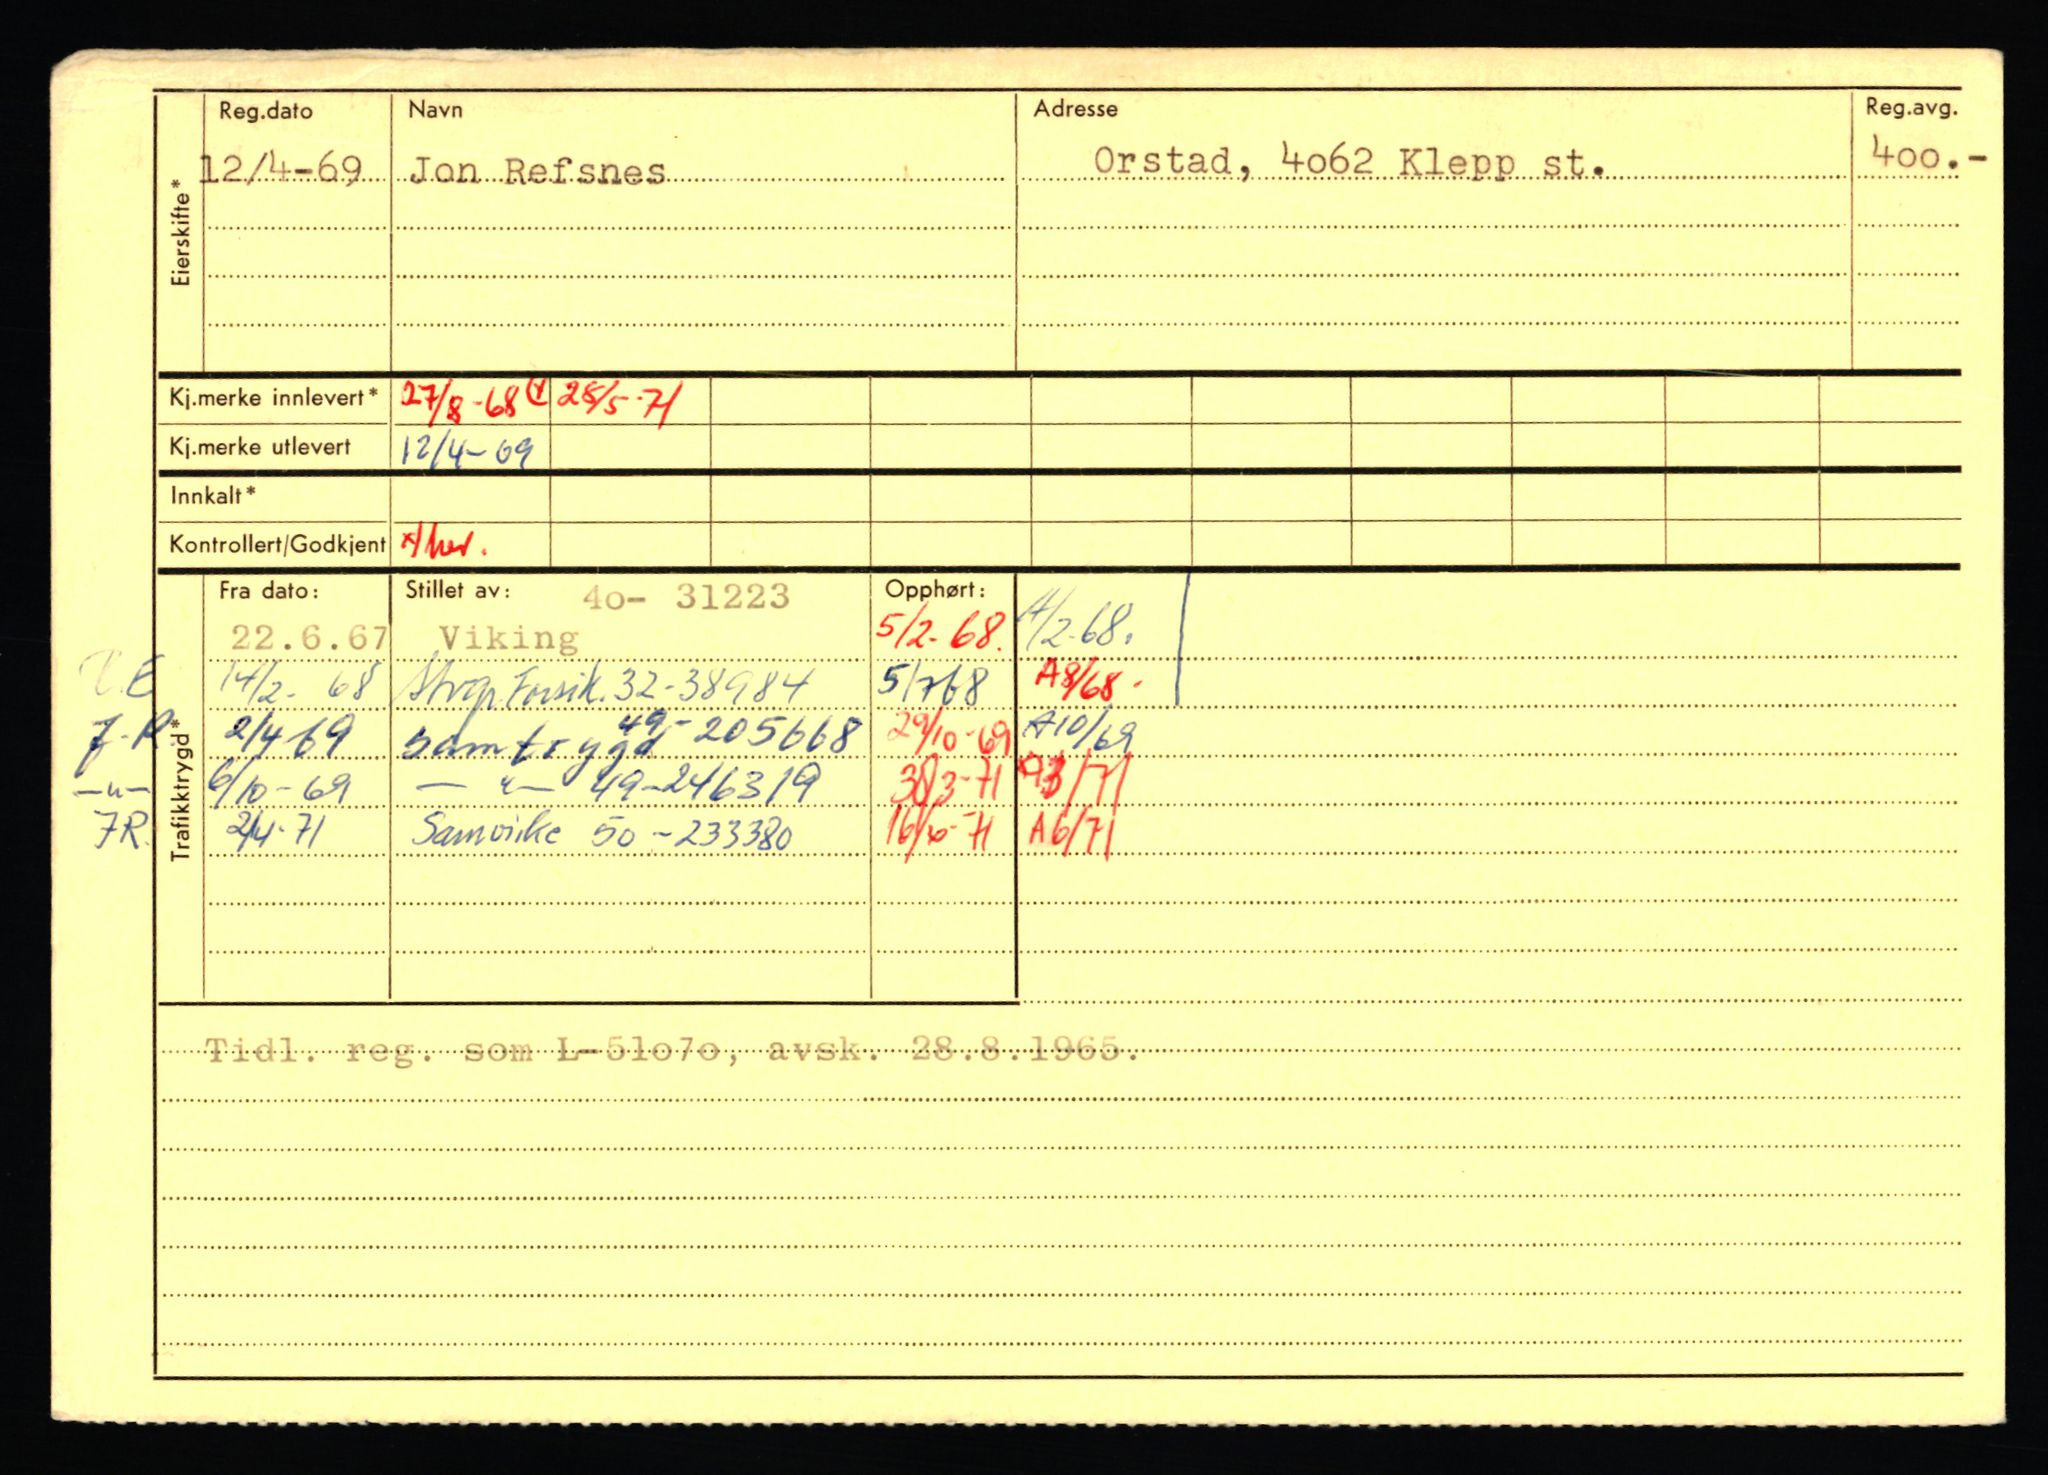 Reg.dato Navn Adresse Reg.avg.
Eierskifte*
12/4-69 Jon Refsnes Orstad, 4o62 Klepp st. 4oo.-
Kj.merke innlevert* 27/8-68 28/5-71
Kj.merke utlevert 12/4-69
Innkalt*
Kontrollert/Godkjent
Trafikktrygd*
Fra dato: Stillet av: 4o- 31223 Opphørt:
22.6.67 Viking 5/2-68. A/2-68.
14/2-68 Forsik. 32-38984 5/7 68 A8/68.
J-R 2/4 69 Samtrygd 49-205668 29/10-69 A10/69
—"— 6/10-69 —"— 49-246319 A3/71
JR. 2/4-71 Samvirke 50-233380 16/6-71 A6/71
Tidl. reg. som L-51o7o, avsk. 28.8.1965.